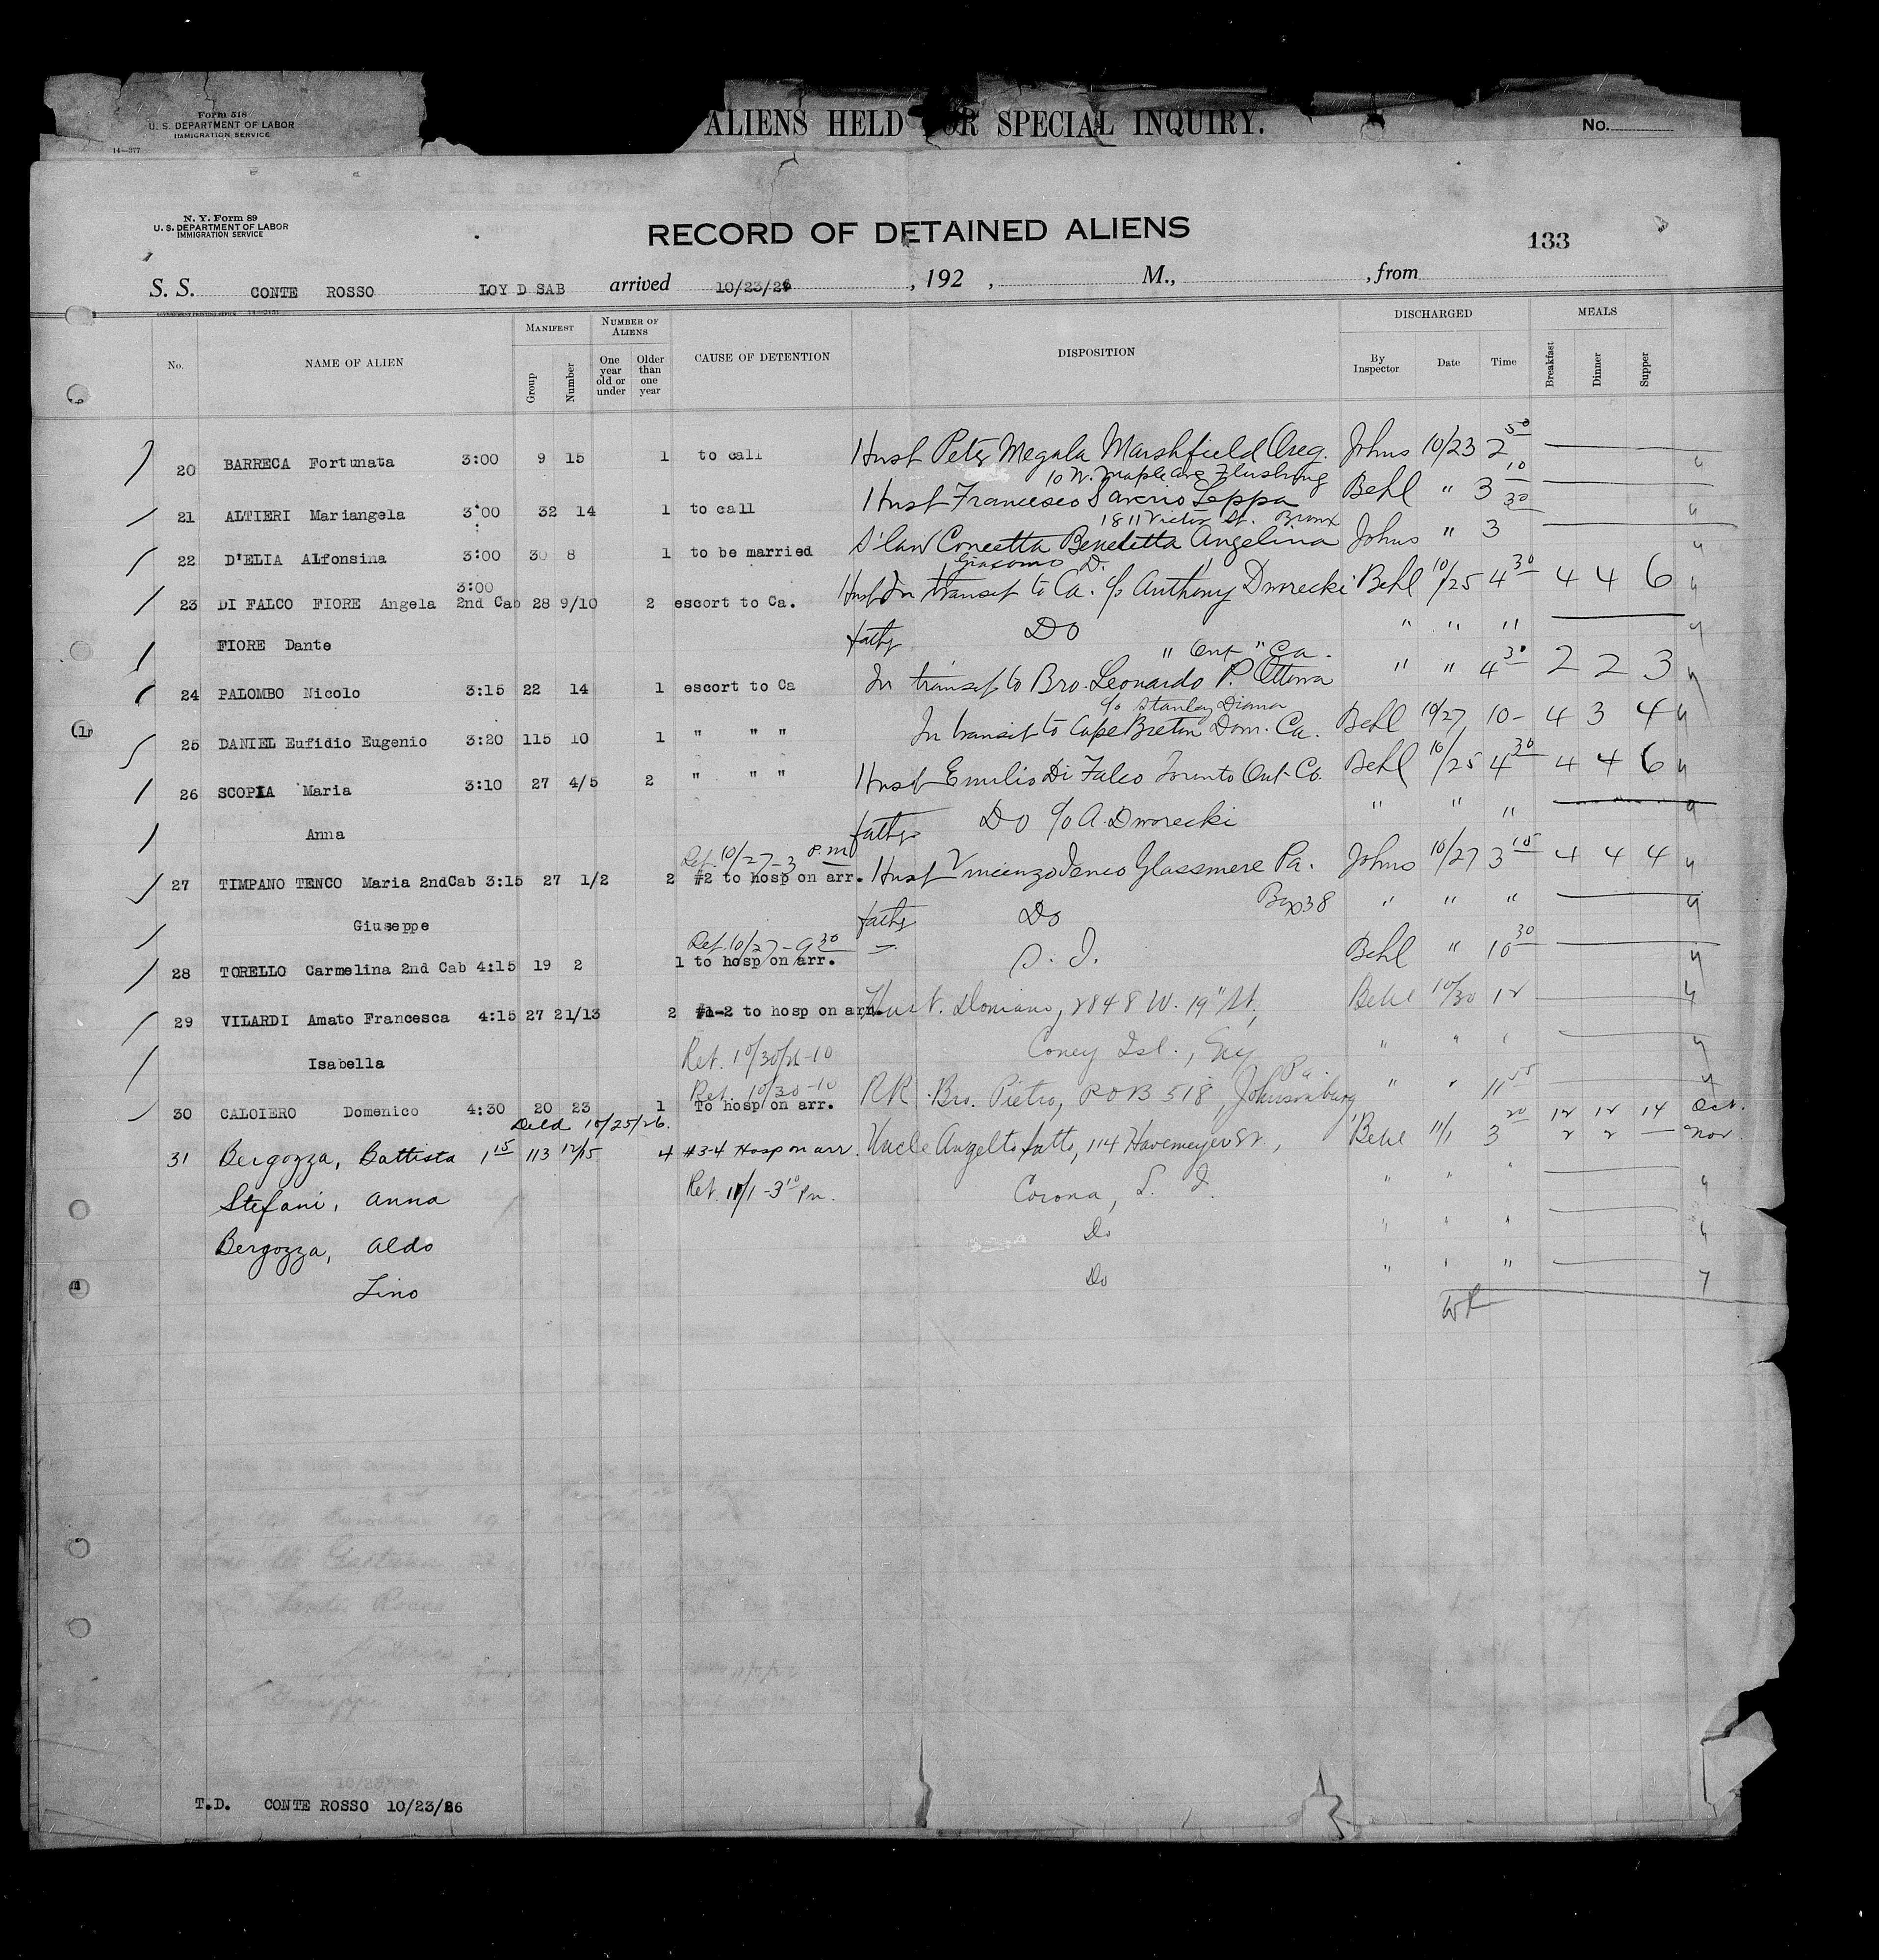 Form 518
U. S. DEPARTMENT OF LABOR
IMMIGRATION SERVICE
14—377
ALIENS HELD FOR SPECIAL INQUIRY.
No.
N. Y. Form 89
U. S. DEPARTMENT OF LABOR
IMMIGRATION SERVICE
RECORD OF DETAINED ALIENS
133
S. S. CONTE ROSSO LOY D SAB arrived 10/23/26, 192 , M., , from
No. NAME OF ALIEN MANIFEST NUMBER OF ALIENS CAUSE OF DETENTION DISPOSITION DISCHARGED MEALS
Group Number One year old or under Older than one year By Inspector Date Time Breakfast Dinner Supper
20 BARRECA Fortunata 3:00 9 15 1 to call Husb Peter Megala Marshfield Oreg. Johns 10/23 2 50
10 N. Maple Ave Flushing
21 ALTIERI Mariangela 3:00 32 14 1 to call Husb Francesco Saverio Leppa Behl " 3 10
1811 Victor St. Bronx
22 D'ELIA Alfonsina 3:00 30 8 1 to be married S'law Concetta Benedetta Angelina Johns " 3 30
Giacomo D.
3:00
23 DI FALCO FIORE Angela 2nd Cab 28 9/10 2 escort to Ca. Husb In transit to Ca. c/o Anthony Dworecki Behl 10/25 4 30 4 4 6
FIORE Dante father Do " " "
" Ont " Ca.
24 PALOMBO Nicolo 3:15 22 14 1 escort to Ca In transit to Bro. Leonardo P. Ottawa " " 4 30 2 2 3
c/o Stanley Diana
25 DANIEL Eufidio Eugenio 3:20 115 10 1 " " " In transit to Cape Breton Dom. Ca. Behl 10/27 10- 4 3 4
26 SCOPIA Maria 3:10 27 4/5 2 " " " Husb Emilio Di Falco Toronto Ont. Ca. Behl 10/25 4 30 4 4 6
Anna father Do c/o A. Dworecki " " "
Ret. 10/27-3 P.M
27 TIMPANO TENCO Maria 2ndCab 3:15 27 1/2 2 #2 to hosp on arr. Husb Vincenzo Tenco Glassmere Pa. Johns 10/27 3 15 4 4 4
Giuseppe father Do Box 38 " " "
Ret. 10/27-9 30
28 TORELLO Carmelina 2nd Cab 4:15 19 2 1 to hosp on arr. S. I. Behl " 10 30
29 VILARDI Amato Francesca 4:15 27 21/13 2 #1-2 to hosp on arr. Husb. Domiano, 2848 W. 19" St, Behl 10/30 12
Isabella Ret. 10/30/26-10 Coney Isl., Ny " " "
Ret. 10/30-10
30 CALOIERO Domenico 4:30 20 23 1 To hosp on arr. RR Bro. Pietro, POB 518, Johnsonburg Pa. " " 11 55
Deld 10/25/26.
31 Bergozza, Battista 1 15 113 12/15 4 #3-4 Hosp on arr. Uncle 114 Havemeyer St, Behl 11/1 3 20 12 12 14 Oct.
2 2 — Nov.
Stefani, Anna Ret. 11/1-3 10 Pm. Corona, L. I. " " "
Bergozza, Aldo Do " " "
Lino Do " " "
WR
T.D. CONTE ROSSO 10/23/26